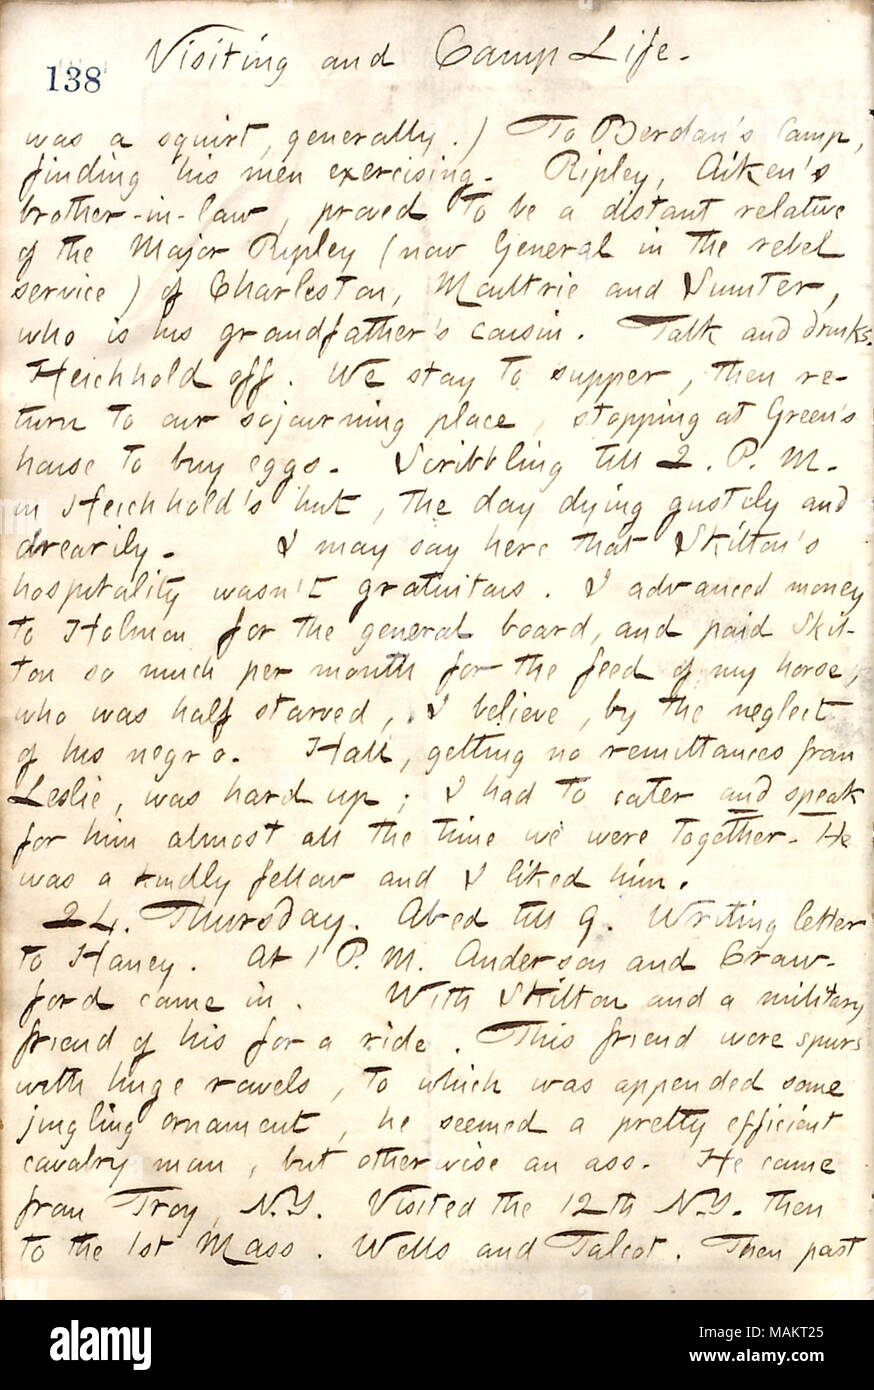 Visiting and Camp Life.
138
was a squirt, generally.) To Berdan's Camp,
finding his men exercising. Ripley, Aiken's
brother-in-law, proved to be a distant relative
of the Major Ripley (now General in the rebel
service) of Charleston, Moultrie and Sumter,
who is his grandfather's cousin. Talk and drinks.
Heichhold off. We stay to supper, then re-
turn to our sojourning place, stopping at Green's
house to buy eggs. Scribbling till 2. P. M.
in Heichhold's hut, the day dying gustily and
drearily. I may say here that Skilton's
hospitality wasn't gratuitous. I advanced money
to Holman for the general board, and paid Skil-
ton so much per month for the feed of my horse,
who was half starved, I believe, by the neglect
of his negro. Hall, getting no remittances from
Leslie, was hard up; I had to cater and speak
for him almost all the time we were together. He
was a kindly fellow and I liked him.
24. Thursday. Abed till 9. Writing letter
to Haney. At 1 P. M. Anderson and Craw-
ford came in. With Skilton and a military
friend of his for a ride. This friend wore spurs
with huge rowels, to which was appended some
jingling ornament, he seemed a pretty efficient
cavalry man, but otherwise an ass. He came
from Troy, N.Y. Visited the 12th N.Y. then
to the 1st Mass. Wells and Talcot. Then past
alamy
Image ID: MAKT25
www.alamy.com